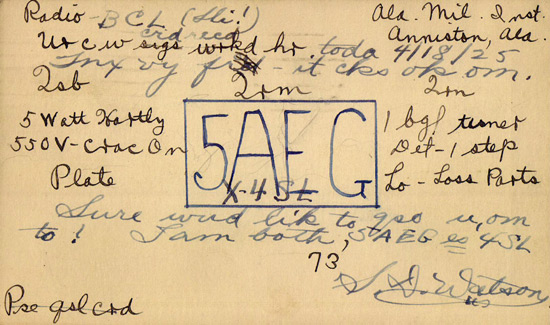 Radio - BCL (Sli!)
Ala. Mil. Inst.
Anniston, Ala.
crd recd
Ur cw sigs wrkd hr toda 4/18/25
Tnx vy - it cks ok om.
2sb 2rm 2rn
5 Watt Hartly
550V - Crac On
Plate
5AEG
X-4SL
1 bgf tuner
Det - 1 step
Lo - Loss Parts
Sure wud lik to qso u, om
to! I am both, 5AEG es 4SL
73,
S. D. Watson
Pse qsl crd